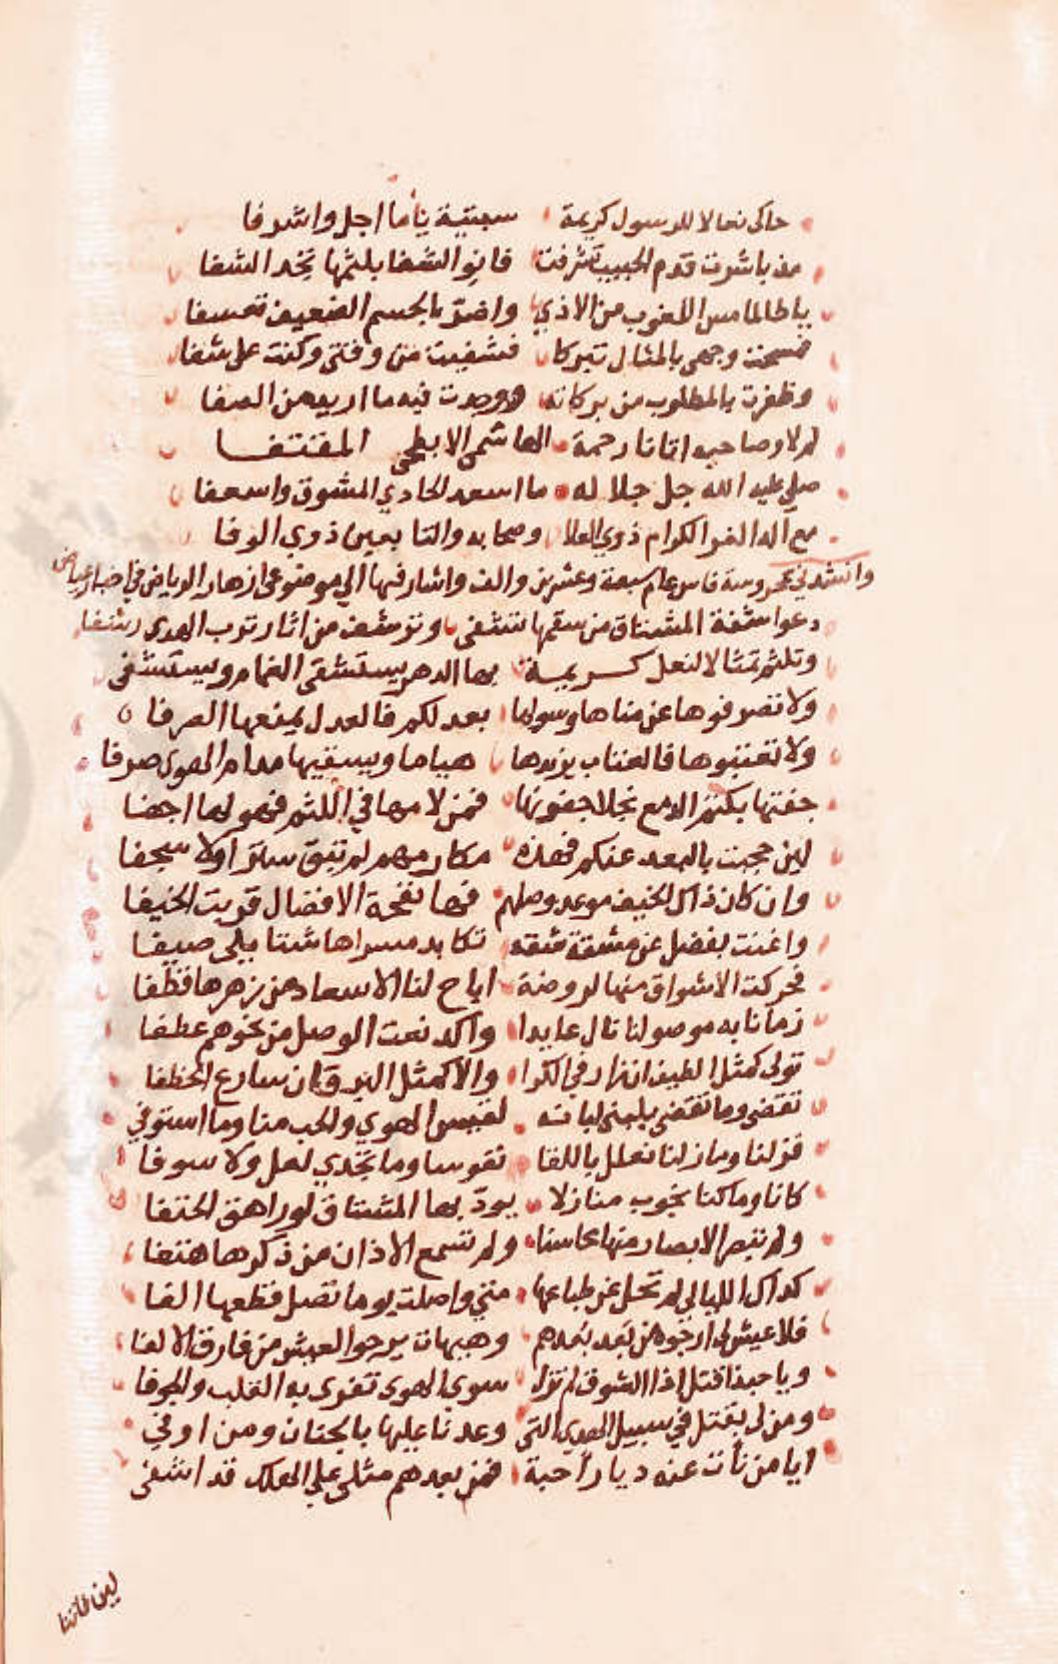 حاكى نعالا للرسول كريمة سبتية يا ما اجل واشرفا
مذ باشرت قدم الحبيب تشرفت فانو الشفا بلثمها تجد الشفا
يا طالما مس اللغوب من الاذي واضر بالجسم الضعيف تعسفا
فمسحت وجهي بالمثال تبركا فشفيت من وقتي وكنت على شفا
وظفرت بالمطلوب من بركاته ووجدت فيه ما اريد من الصفا
لم لا وصاحبه اتانا رحمة الهاشمي الابطحي المقتفا
صلي عليه الله جل جلاله ما اسعد الحادي المشوق واسعفا
مع اله الغر الكرام ذوي العلا وصحابه والتابعين ذوي الوفا
وانشدني بمحروسة فاس عام سبعة وعشرين والف واشار فيها الي موضوعي ازهار الرياض في اخبار عياض
دعوا شفة المشتاق من سقمها تشفى وترشف من اثار ترب الهدى رشفا
وتلثم تمثالا لنعل كريمة بها الدهر يستسقى الغمام ويستشفى
ولا تصرفوها عن مناها وسولها بعدلكم فالعدل يمنعها الصرفا
ولا تعتبوها فالعتاب يزيدها هياما ويسقيها مدام الهوى صرفا
جفتها بكتم الدمع بخلا جفونها فمن لامها في اللثم فهو لها اجفا
لين حجبت بالبعد عنكم فهذه مكارمهم لم تبق سترا ولا سجفا
وان كان ذاك الخيف موعد وصلهم فها نفحة الافضال قربت الخيفا
واغنت بفضل عن مشقة شقة تكابد مسراها شتا يلي صيفا
فحركت الاشواق منها لروضة اباح لنا الاسعاد من زهرها قطفا
زمانا به موصولنا نال عايدا واكد نعت الوصل من نحوهم عطفا
تولى كمثل الطيف ان زار في الكرا والا كمثل البرق ان سارع الخطفا
تقضى وما تقضى بلبنى لبانة لقيس الهوي والحب منا وما استوفي
فزلنا وما زلنا نعلل باللقا نفوسا وما تجدي لعل ولا سوفا
كانا وما كنا نجوب منازلا يود بها المشتاق لو راهق الحتفا
ولم تبصر الابصار منها محاسنا ولم تسمع الاذان من ذكرها هتفا
كذاك الليالي لم تحل عن طباعها متي واصلت يوما تصل قطعها الفا
فلا عيش لي ارجوه من بعد بعدهم وهيهات يرجوا العيش من فارق الالفا
ويا حبذا قتل اذا الشوق لم تزل سوي الهوى تقوى به القلب والجوفا
ومن لي بقتل في سبيل الهوى التي وعدنا عليها بالجنان ومن اوفي
ايا من نأت عنه ديار احبة فمن بعدهم مثلى علي الهلك قد اشفى
لين فاتنا